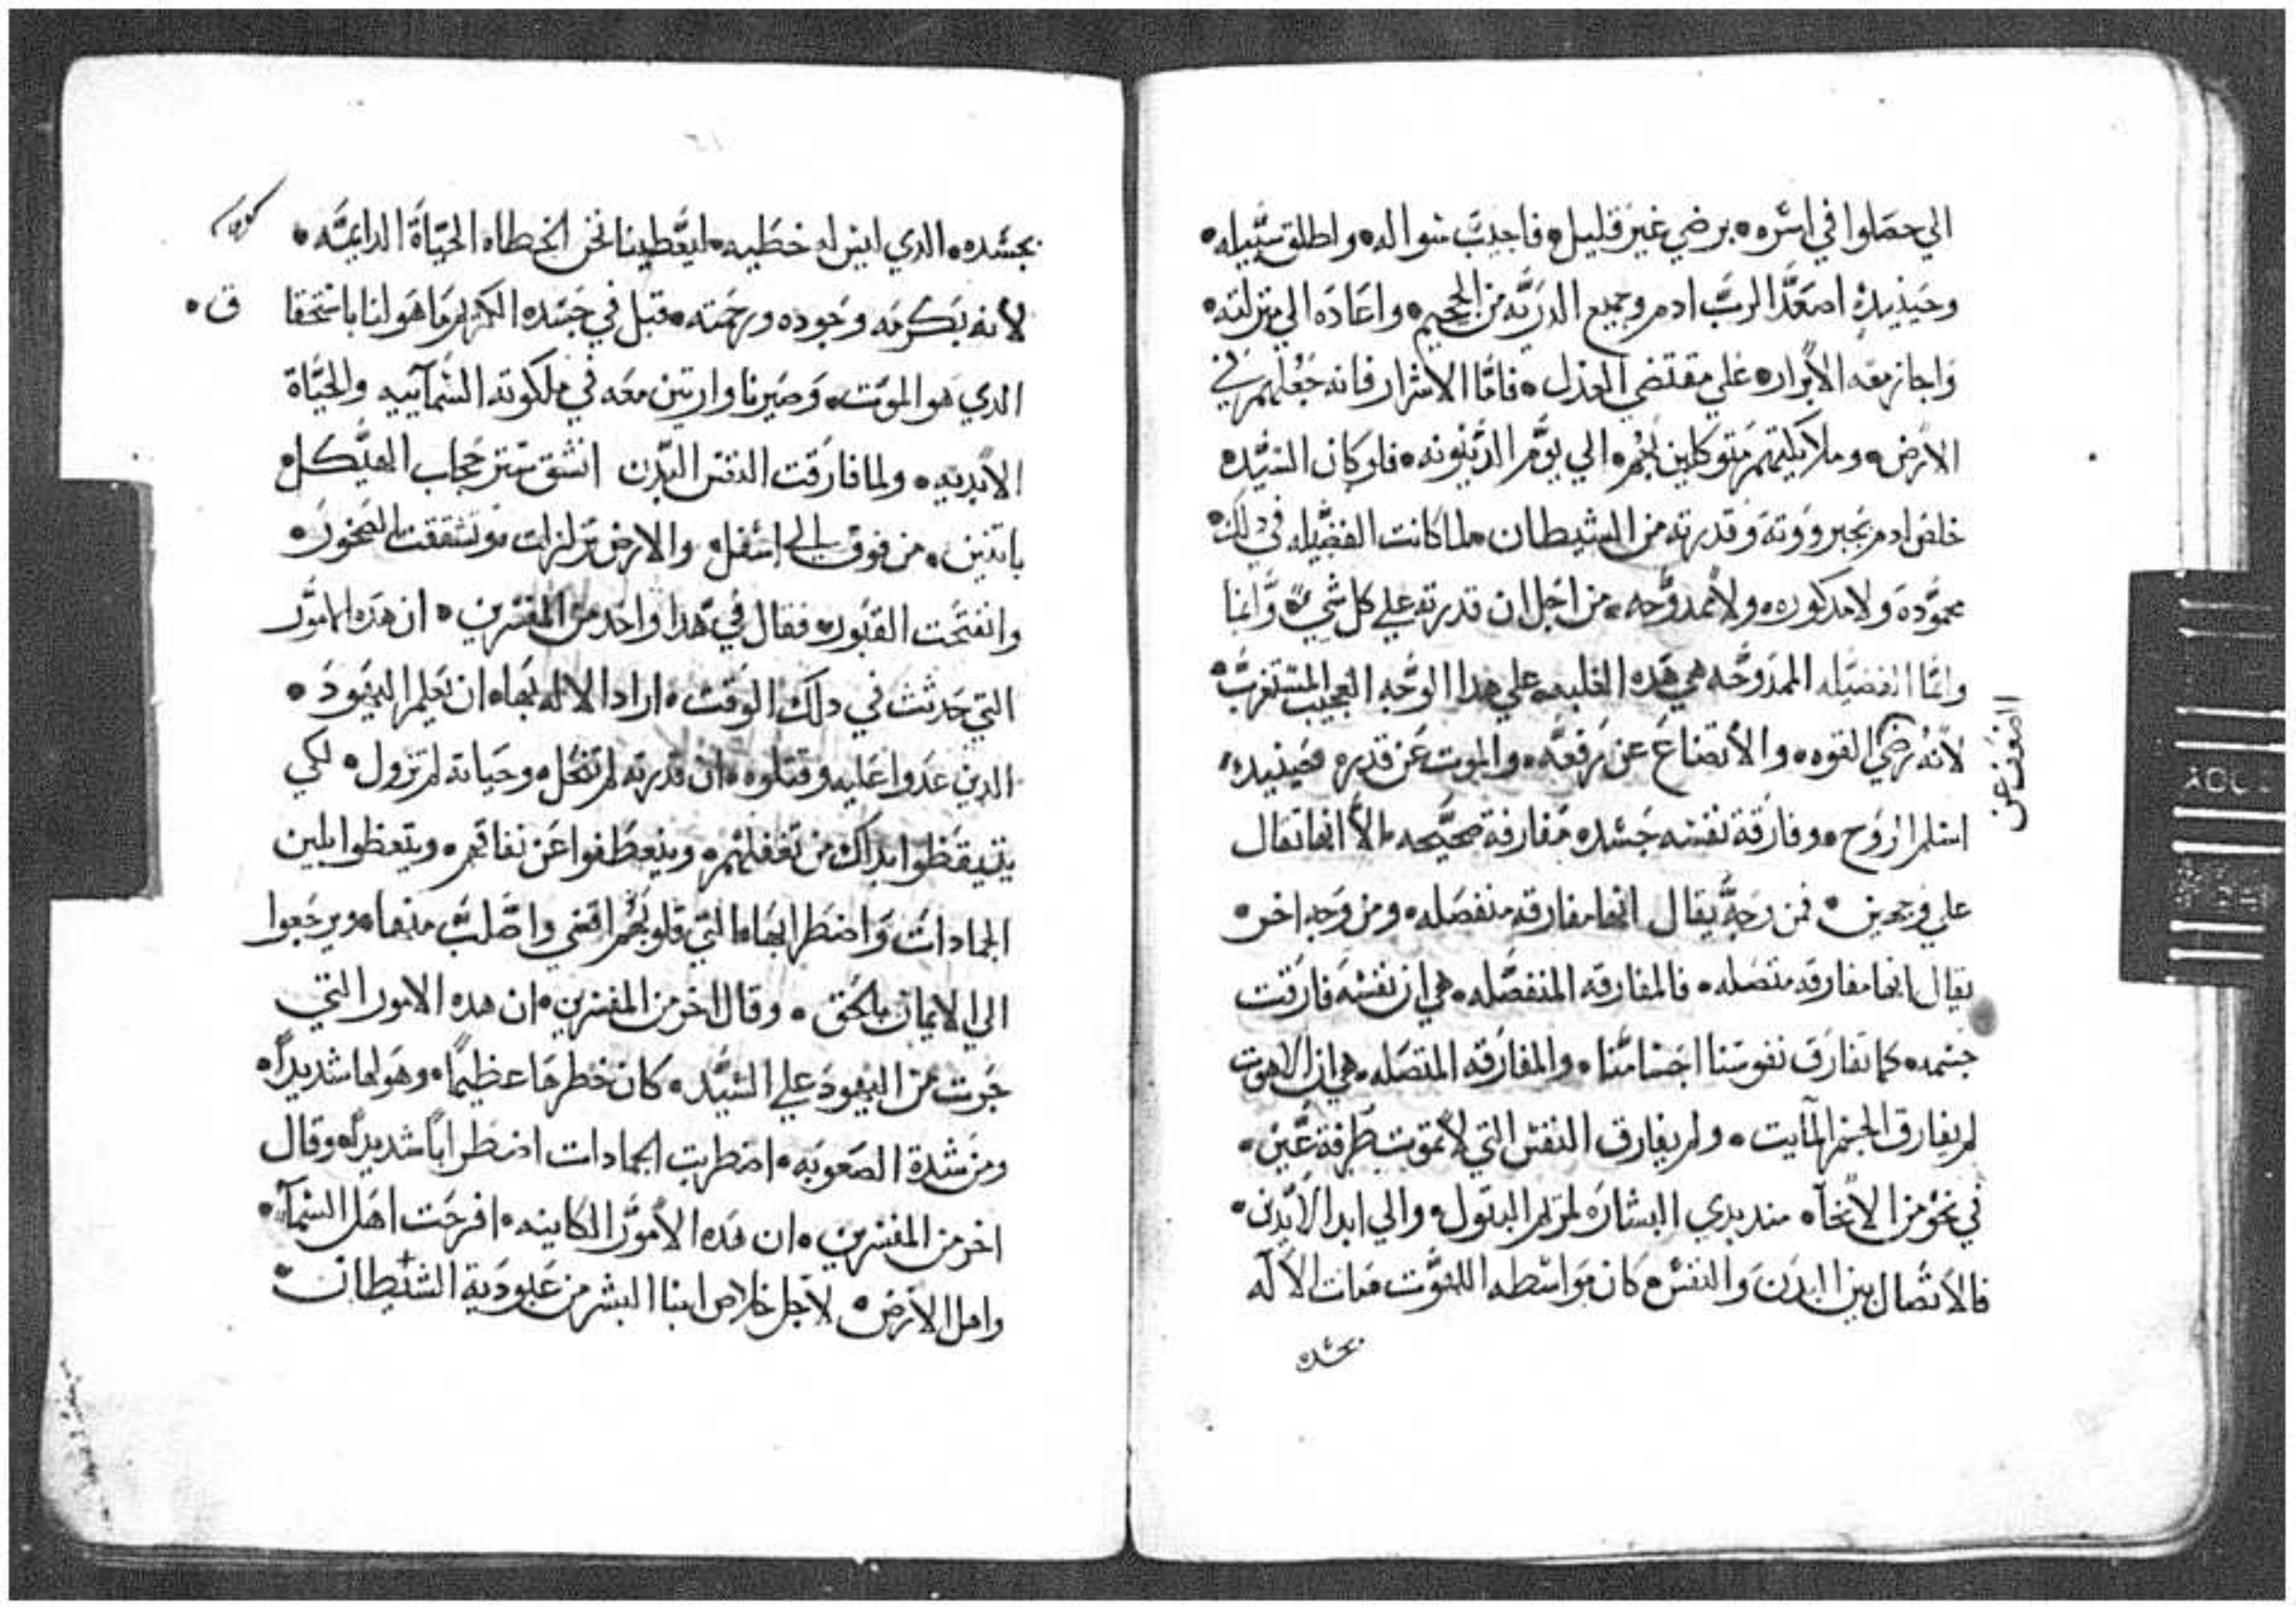 الي حصلوا في اسره ۰ برضي غير قليل ۰ فاجيب سواله ۰ واطلق سبيله ۰
وحينيذ اصعد الرب ادم وجميع الدريه من الجحيم ۰ واعاده الي منزلته ۰
واجاز معه الابرار ۰ علي مقتضي العدل ۰ فاما الاشرار فانه جعلهم في
الارض ۰ وملايكتهم متوكلين بهم ۰ الي يوم الدينونه ۰ فلو كان السيد ۰
خلص ادم بجبرووته وقدرته من الشيطان ۰ لما كانت الفضيله في دلك ۰
محموده ولا مدكوره ۰ ولا ممدوحه ۰ من اجل ان قدرته علي كل شي ۰ وانما
وانما الفضيله الممدوحه هي هده الغلبه ۰ علي هدا الوجه العجيب المستغرب ۰
لانه رضي القوه ۰ والاتضاع عن رفعه ۰ والموت عن قدره فحينيد ۰
اسلم الروح ۰ وفارقة نفسه جسده مفارقة صحيحه ۰ الا انها تقال
علي وجهين ۰ فمن وجه يقال انها مفارقه منفصله ۰ ومن وجه اخر ۰
يقال انها مفارقه متصله ۰ فالمفارقه المنفصله ۰ هي ان نفسه فارقت
جسمه ۰ كما تفارق نفوسنا اجسامنا ۰ والمفارقه المتصله ۰ هي ان الاهوت
لم يفارق الجسم المايت ۰ ولم يفارق النفس التي لا تموت طرفة عين ۰
في نحو من الانحاء ۰ مند بدي البشاره لمريم البتول ۰ والي ابد الابدين ۰
فالاتصال بين البدن والنفس ۰ كان بواسطه اللاهوت فمات الاله
بجسده
بجسده ۰ الدي ليس له خطيه ۰ ليعطينا نحن الخطاه الحياة الدايمه ۰
لانه بكرمه وجوده ورحمته ۰ قبل في جسده الكريم ما هو لنا باستحقا ق ۰
الدي هو الموت ۰ وصيرنا وارتين معه في ملكوته السمآييه والحياة
الابديه ۰ ولما فارقت النفس البدن انشق ستر حجاب الهيكل ۰
باتنين ۰ من فوق الي اسفل ۰ والارض تزلزلت ۰ وتشققت الصخور ۰
وانفتحت القبور ۰ فقال في هدا واحد من المفسرين ۰ ان هده الامور
التي حدثت في دلك الوقت ۰ اراد الاله بها ۰ ان يعلم اليهود ۰
الدين عدوا عليه وقتلوه ۰ ان قدرته لم تنحل ۰ وحياته لم تزول ۰ لكي
يتيقظوا بداك من تغفلهم ۰ وينعطفوا عن نفاقهم ۰ ويتعظوا بلين
الجمادات واضطرابها ۰ التي قلوبهم اقسي واصلب منها ۰ ويرجعوا
الي الايمان بالحق ۰ وقال اخر من المفسرين ۰ ان هده الامور التي
جرت من اليهود علي السيد ۰ كان خطرها عظيماً ۰ وهولها شديداً ۰
ومن شدة الصعوبه ۰ اضطربت الجمادات اضطراباً شديداً ۰ وقال
اخر من المفسرين ۰ ان هده الامور الكاينه ۰ افرحت اهل السمآ ۰
واهل الارض ۰ لاجل خلاص ابنا البشر من عبودية الشيطان ۰